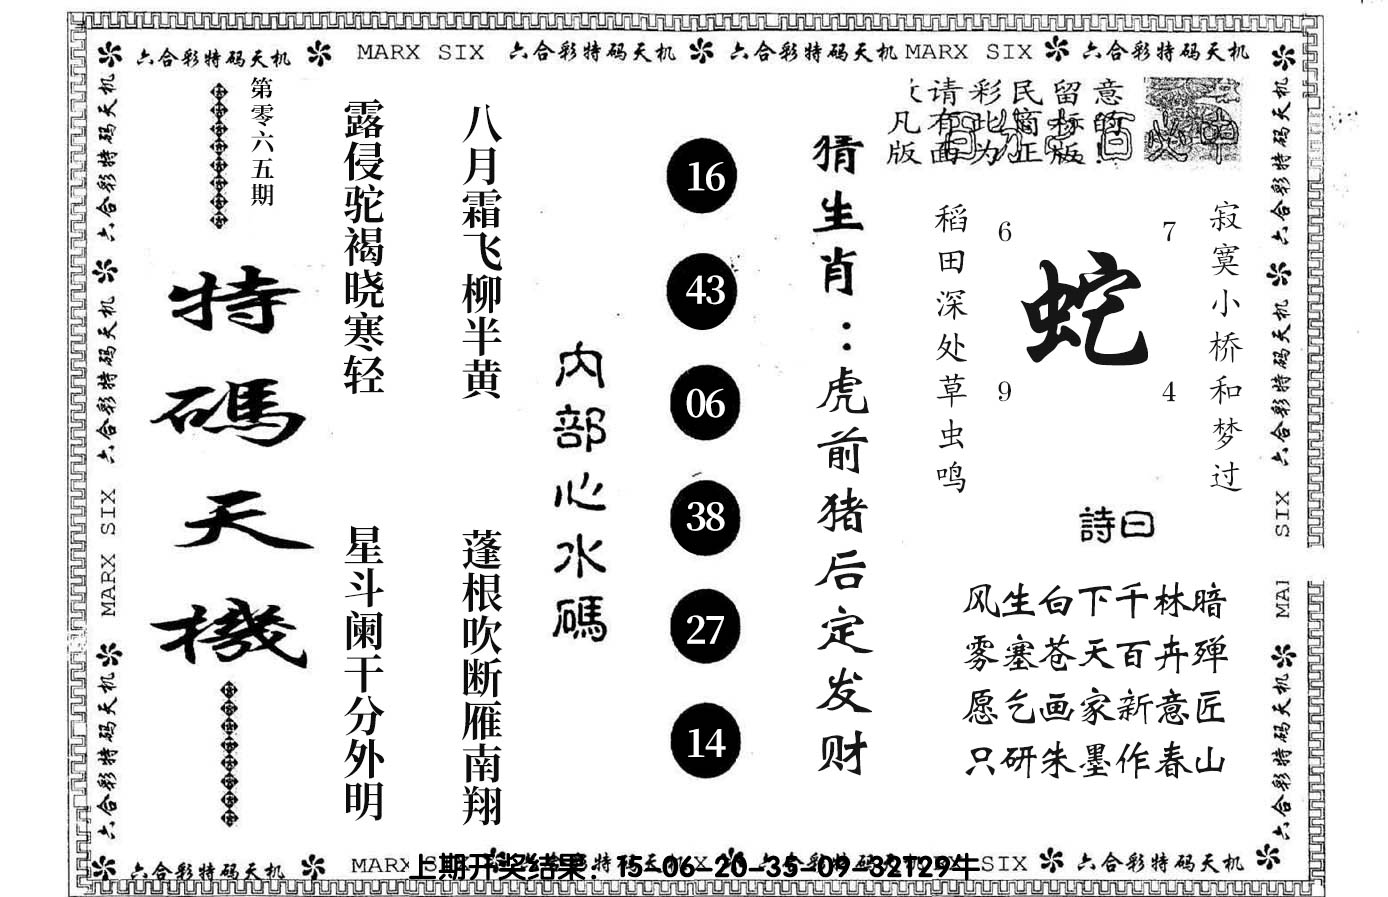 六合彩特码天机 MARX SIX 六合彩特码天机 六合彩特码天机 MARX SIX 六合彩特码天机
六合彩特码天机 六合彩特码天机 MARX SIX 六合彩特码天机
第零六五期
特碼天機
露侵驼褐晓寒轻
星斗阑干分外明
八月霜飞柳半黄
蓬根吹断雁南翔
内部心水碼
16
43
06
38
27
14
猜生肖：虎前猪后定发财
请彩民留意
凡有此商标的
版面为正版!
稻田深处草虫鸣
6 7
蛇
9 4
寂寞小桥和梦过
詩曰
风生白下千林暗
雾塞苍天百卉殚
愿乞画家新意匠
只研朱墨作春山
六合彩特码天机 六合彩特码天机 SIX MAI 六合彩特码天机
六合彩特码天机 MARX SIX 六合彩特码天机
上期开奖结果：15-06-20-35-09-32T29牛